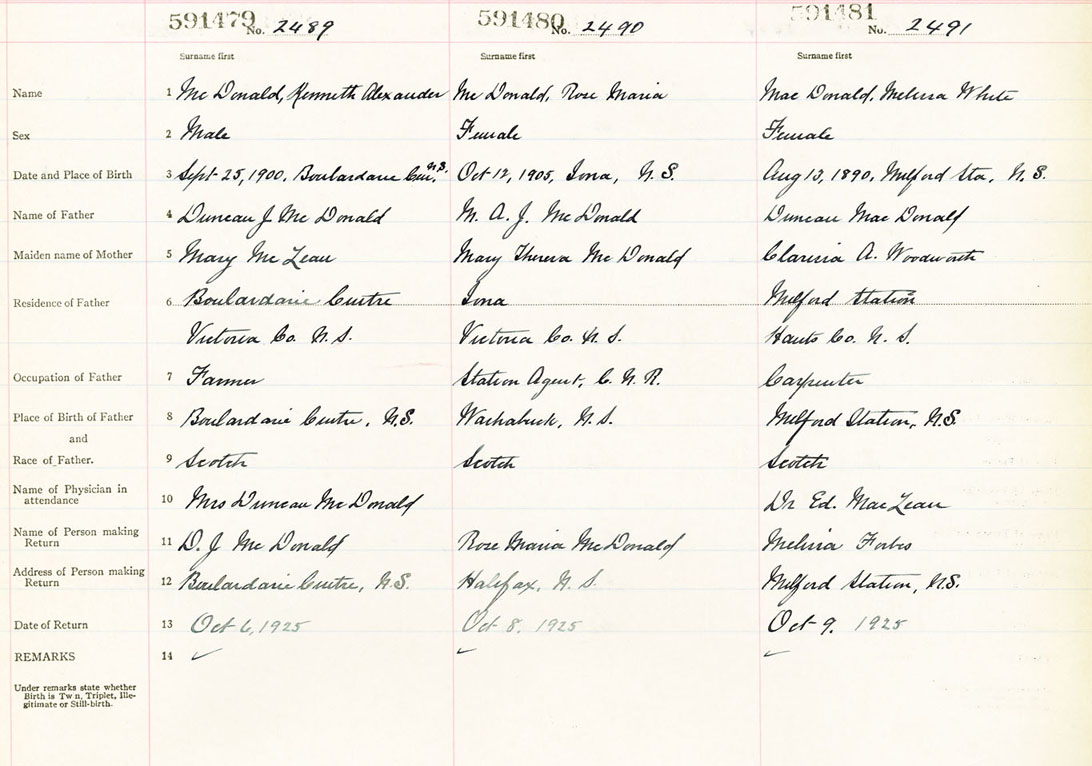 591479 No. 2489 591480 No. 2490 591481 No. 2491
Surname first Surname first Surname first
Name 1 Mc Donald, Kenneth Alexander Mc Donald, Rose Maria Mac Donald, Melissa White
Sex 2 Male Female Female
Date and Place of Birth 3 Sept 25, 1900, Boulardarie Cen, N.S. Oct 12, 1905, Iona, N.S. Aug 13, 1890, Milford Sta, N.S.
Name of Father 4 Duncan J Mc Donald M. A. J. Mc Donald Duncan Mac Donald
Maiden name of Mother 5 Mary Mc Lean Mary Theresa Mc Donald Clarissa A. Woodworth
Residence of Father 6 Boulardarie Centre Iona Milford Station
Victoria Co. N.S. Victoria Co. N.S. Hants Co. N.S.
Occupation of Father 7 Farmer Station Agent, C.N.R. Carpenter
Place of Birth of Father 8 Boulardarie Centre, N.S. Washabuck, N.S. Milford Station, N.S.
and
Race of Father. 9 Scotch Scotch Scotch
Name of Physician in
attendance 10 Mrs Duncan Mc Donald Dr Ed. Mac Lean
Name of Person making
Return 11 D. J Mc Donald Rose Maria Mc Donald Melissa Forbes
Address of Person making
Return 12 Boulardarie Centre, N.S. Halifax, N.S. Milford Station, N.S.
Date of Return 13 Oct 6, 1925 Oct 8, 1925 Oct 9. 1925
REMARKS 14 ✓ ✓ ✓
Under remarks state whether
Birth is Tw n, Triplet, Ille-
gitimate or Still-birth.